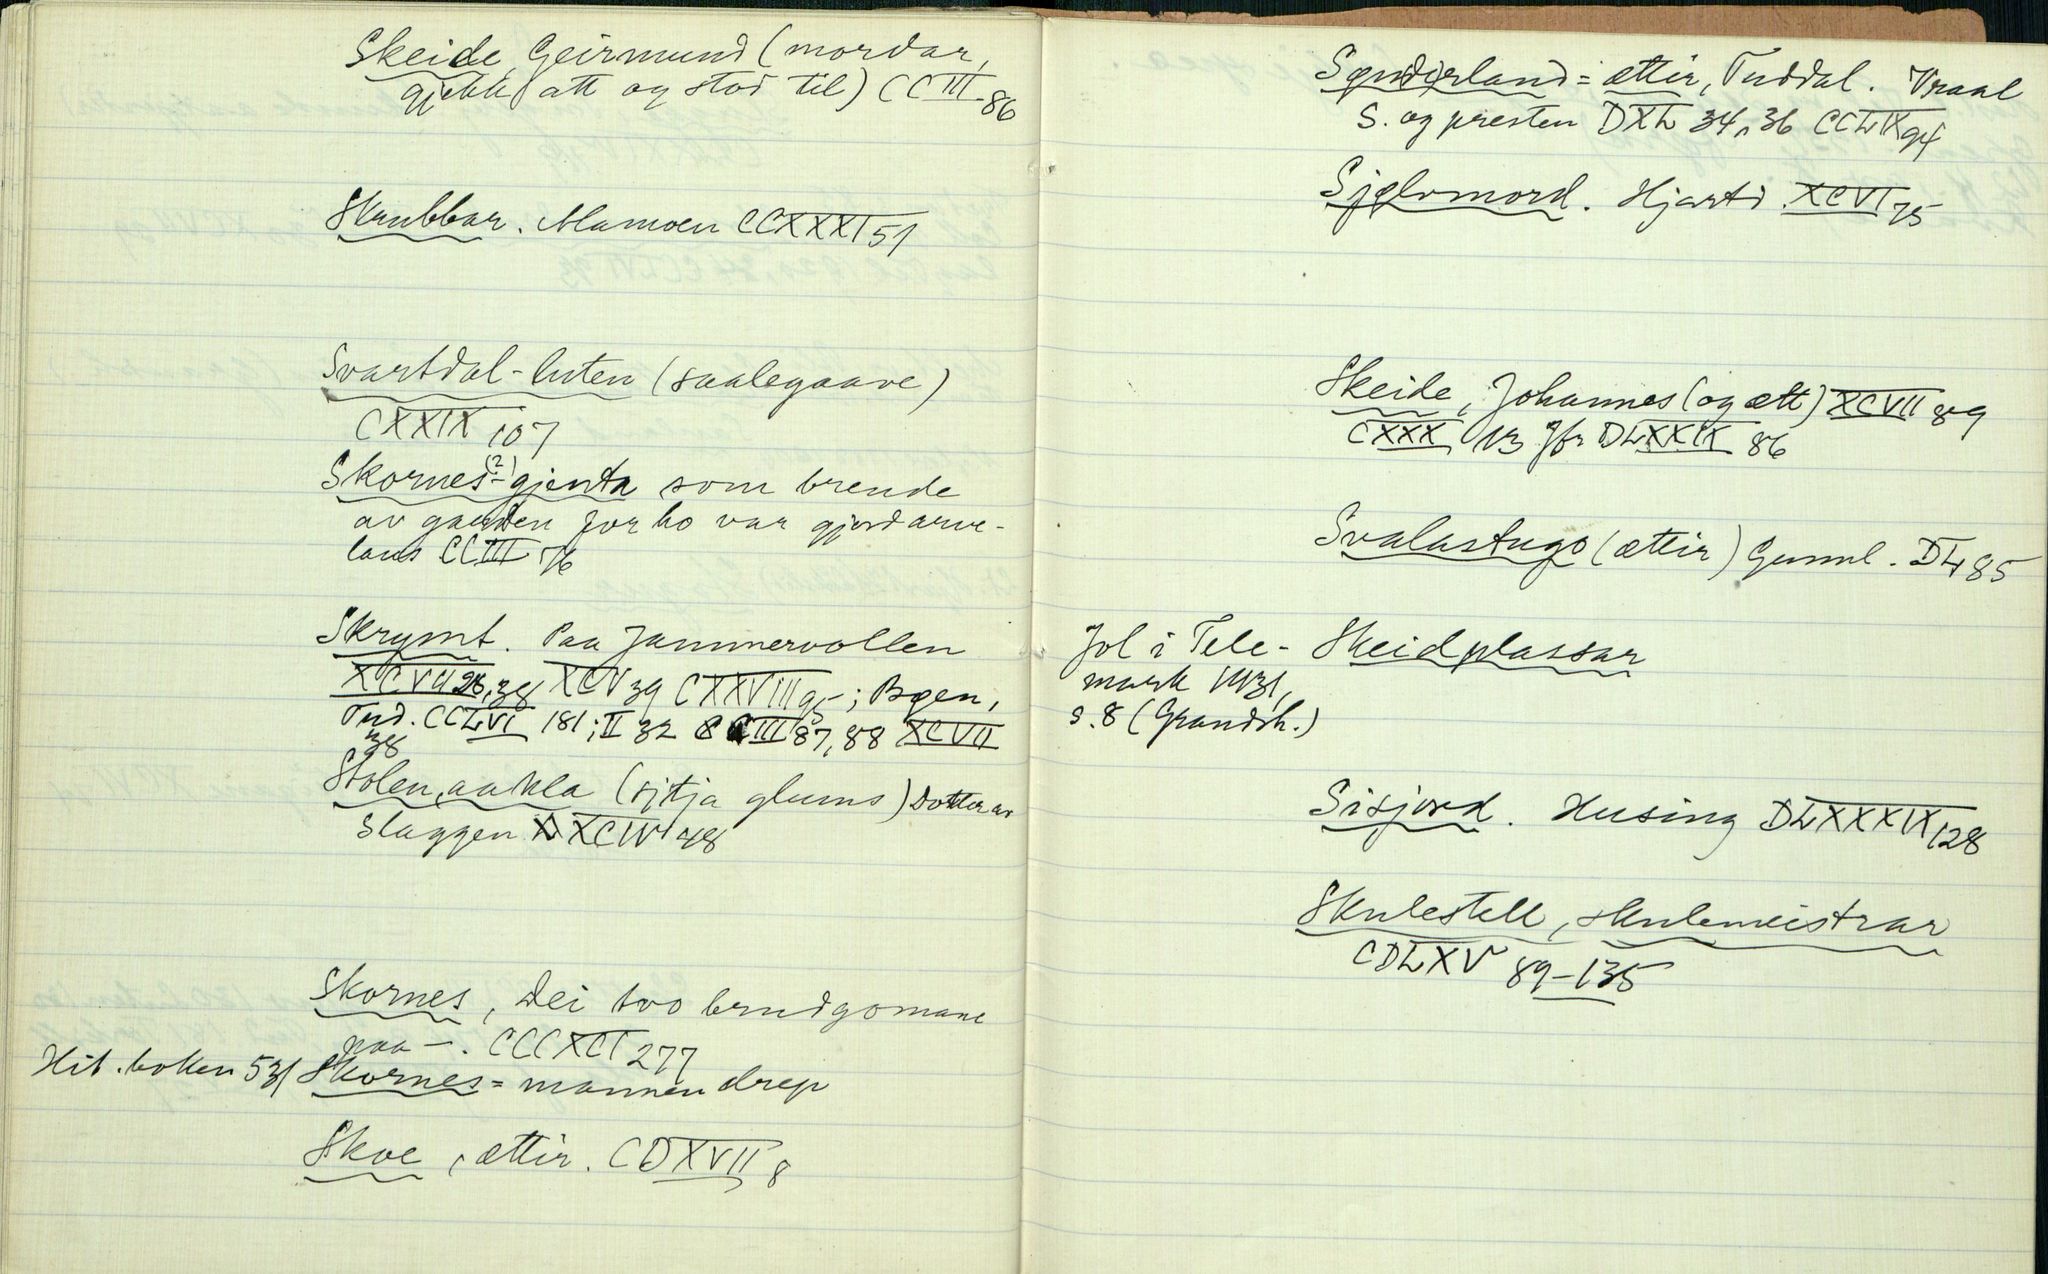 Skeide, Geirmund (mordar,
gjekk att og stod til) CCIII 86
Skrubbar. Mamoen CCXXXI 51
Svartdal-luten (saalegaave)
CXXIX 107
Skornes-(?)gjenta som brende
av garden for ho var gjord arve-
laus CCIII 76
Skrymt. Paa Jammervollen
XCVII 28, 38 XCV 39 CXXVIII 95; Bøen,
Tud. CCLVI 181; II 32 CCIII 87, 88 XCVII
38
Stolen, aakla (sitja glums) Dotter av
Slaggen XCIV 48
Skornes, Dei tvo brudgomane
paa -. CCCXCI 277
Hit. boken 531 Skornes = mannen drep
Skoe, ættir. CDXVII 8
Sønderland = ættir, Tuddal. Vraal
S. og presten DXL 34, 36 CCLIX 94
Sjølvmord. Hjartd. XCVI 75
Skeide, Johannes (og ætt) XCVII 89
CXXX 13 Jfr DLXXIX 86
Svalastugo (ættir) Gunnl. DL 85
Jol i Tele-
mark 1931,
s. 8 (Grandsh.)
Skeidplassar
Sisjord. Husing DLXXXIX 128
Skulestell, skulemeistrar
CDLXV 89-135